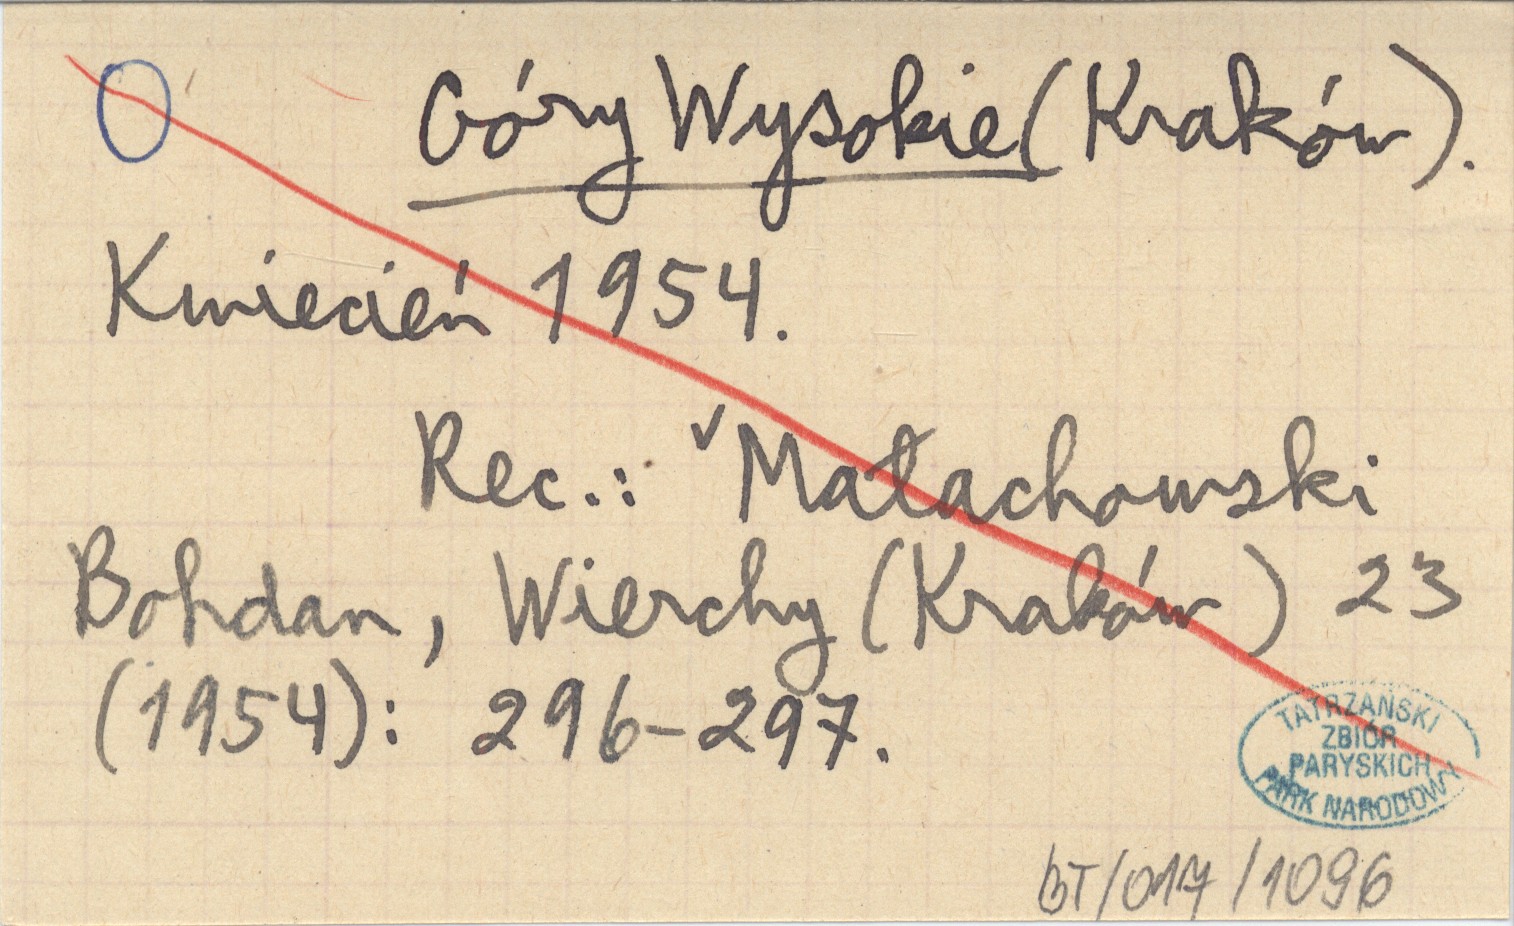 Góry Wysokie (Kraków).
Kwiecień 1954.
Rec.: ✓Małachowski
Bohdan, Wierchy (Kraków) 23
(1954): 296-297.
TATRZAŃSKI
ZBIÓR
PARYSKICH
PARK NARODOWY
BT/017/1096